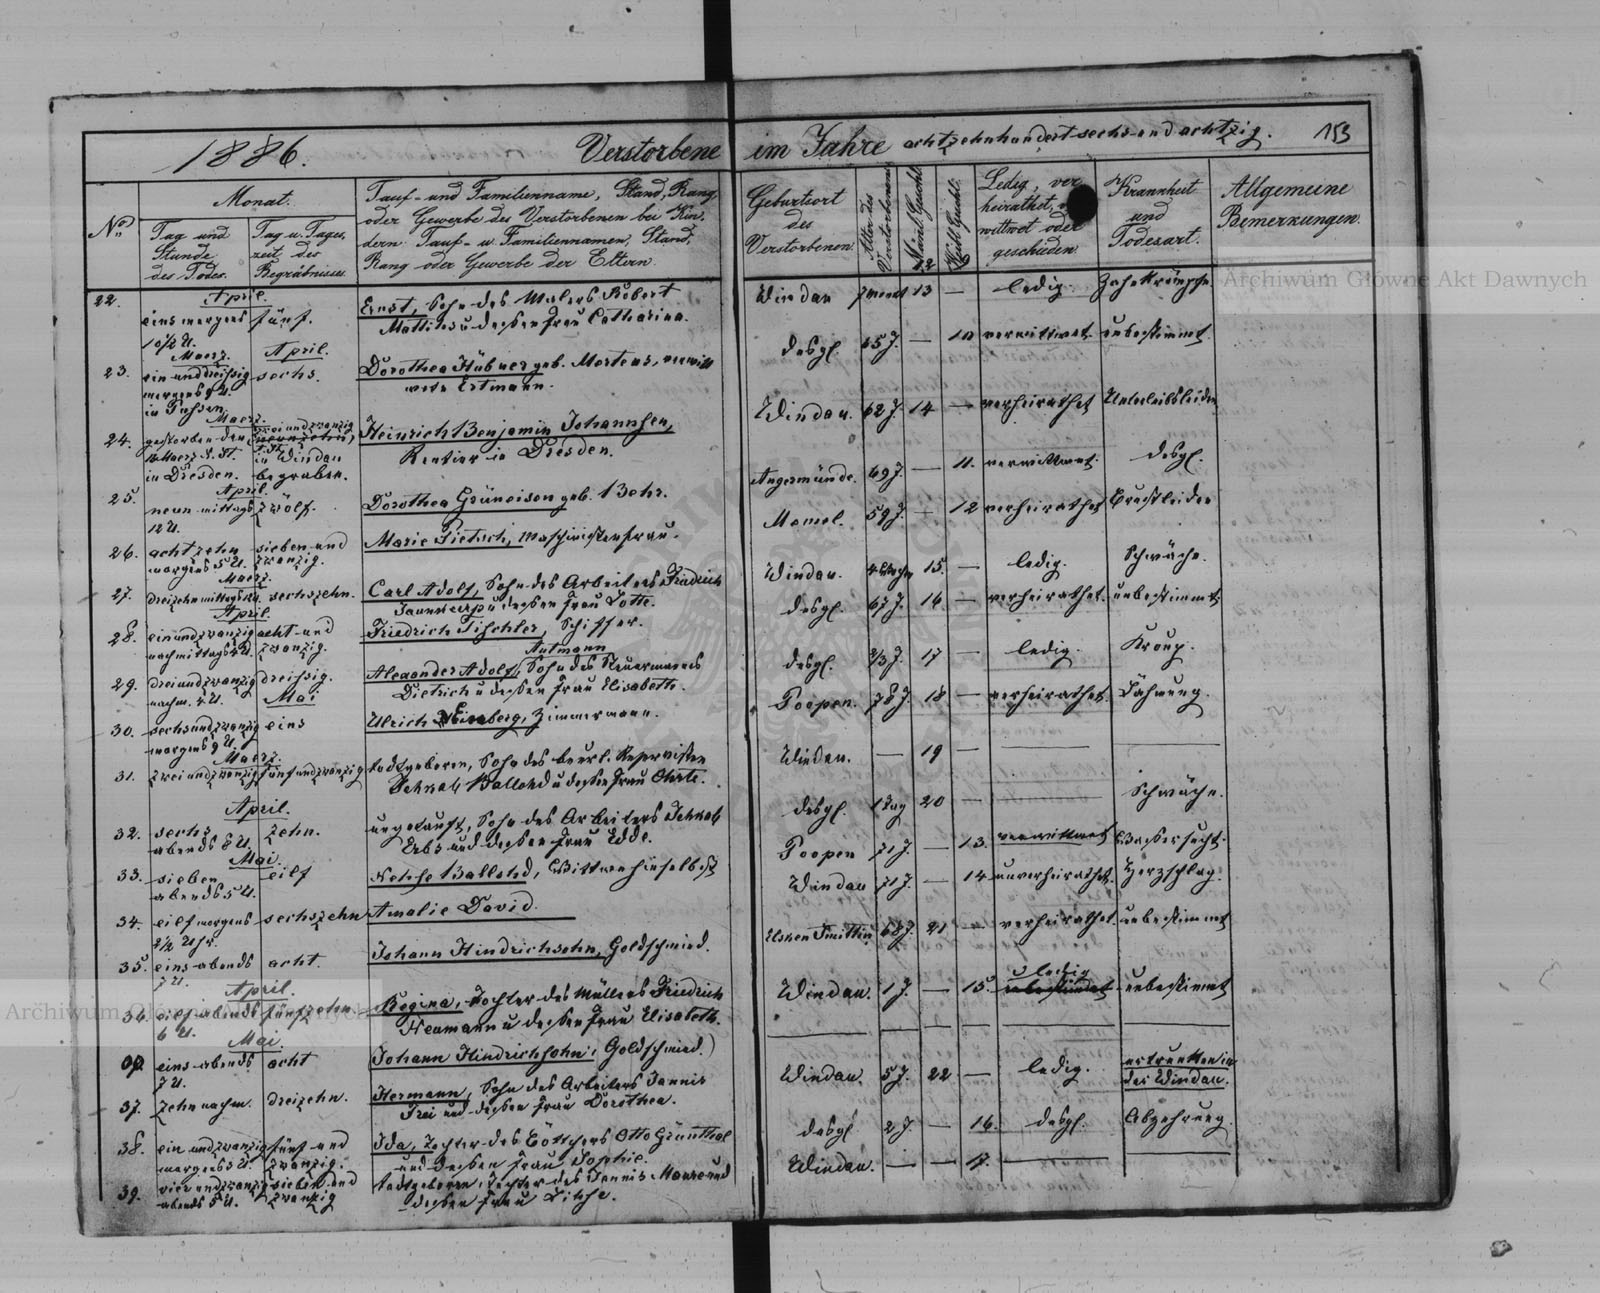 1886.
Verstorbene im Jahre achtzehnhundert sechs und achtzig.
153
No.
Monat.
Tag und Stunde des Todes.
Tag u. Tageszeit des Begräbnisses.
Tauf- und Familienname, Stand, Rang
oder Gewerbe des Verstorbenen bei Kin,
dern: Tauf- u. Familiennamen, Stand,
Rang oder Gewerbe der Eltern.
Geburtsort
des
Verstorbenen.
Alter des Verstorbenen
Männl. Geschl.
12
Weibl. Geschl.
9
Ledig, ver
heirathet,
wittwet oder
geschieden
Krankheit
und
Todesart.
Allgemeine
Bemerkungen.
22.
April.
eins morgens fünf.
10½ U.
Ernst, Sohn des Malers Robert
u dessen Frau Catharina.
Windau 7 Monat 13 — ledig. Zahnkrämpfe
23.
Maerz. April.
ein und dreissig sechs.
morgens 9 U.
Dorothea Hübner geb. Mertens, verwitt
wete Ertmann.
desgl. 65 J. — 10 verwittwet unbestimmt.
24.
Maerz.
gestorben den
in Dresden.
zwei und zwanzig
in Windau
begraben.
Heinrich Benjamin Johannsen,
Rentier in Dresden.
Windau. 62 J. 14 — verheirathet Unterleibsleiden
25.
April.
neun mittags zwölf.
12 U.
Dorothea Grüneisen geb. Behr.
Angermünde. 69 J. — 11. verwittwet. desgl.
26.
achtzehn sieben und
morgens 5 U. zwanzig.
Marie Pietsch, Maschinistenfrau.
Memel. 59 J. — 12 verheirathet Brustleiden
27.
Maerz.
dreizehn mittags 12 U. sechszehn.
Carl Adolf, Sohn des Arbeiters Friedrich
u dessen Frau Lotte.
Windau. 4 Wochen 15. — ledig. Schwäche.
28.
April.
einundzwanzig acht und
nachmittags 4 U. zwanzig.
Friedrich Tischler, Schiffer.
desgl. 67 J. 16 — verheirathet. unbestimmt.
29.
dreiundzwanzig dreissig.
nachm. 4 U.
Autmann
Alexander Adolf, Sohn des Steuermanns
Dietrich u dessen Frau Elisabeth.
desgl. 2/3 J. 17 — ledig. Kroup.
30.
Mai
sechsundzwanzig eins
morgens 9 U.
Ulrich Weinberg, Zimmermann.
Poopen. 78 J. 18 — verheirathet. Lähmung.
31.
Maerz.
zwei und zwanzig fünf und zwanzig
todtgeboren, Sohn des beurl. Reservisten
Jehkab Ballohd u dessen Frau Ohrte.
Windau. — 19 —
32.
April.
sechs zehn.
abends 8 U.
ungetauft, Sohn des Arbeiters Jehkab
Erbs und dessen Frau Edde.
desgl. 1 Tag 20 — Schwäche.
33.
Mai.
sieben eilf
abends 5 U.
Nehse Ballohd, Wittwe hieselbst
Poopen 71 J. — 13. verwittwet Wassersucht.
34.
eilf morgens sechszehn
Amalie David.
Windau 71 J. — 14 unverheirathet. Herzschlag.
35.
eins abends acht.
7 U.
Johann Hindrichsohn, Goldschmied.
68 J. 21 — verheirathet. unbestimmt
36.
April.
eilf abends fünfzehn
6 U.
Regina, Tochter des Müllers Friedrich
Neumann u dessen Frau Elisabeth.
Windau. 1 J. — 15. ledig unbestimmt
Mai.
eins abends acht
7 U.
Johann Hindrichsohn, Goldschmied.)
37.
zehn nachm. dreizehn.
Hermann, Sohn des Arbeiters Jannis
Frei und dessen Frau Dorothea.
Windau. 5 J. 22 — ledig. ertrunken in
der Windau.
38.
ein und zwanzig fünf und
morgens 5 U. zwanzig.
Ida, Tochter des Böttchers Otto Grünthal
und dessen Frau Sophie.
desgl 2 J — 16. desgl. Abzehrung.
39.
vier und zwanzig sieben und
abends 5 U. zwanzig
todtgeboren, Tochter des Jannis
dessen Frau Lihse.
Windau. — — 17.
Archiwum Główne Akt Dawnych
Archiwum Główne Akt Dawnych